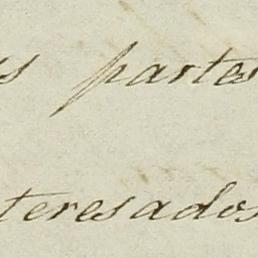 s partes
teresados